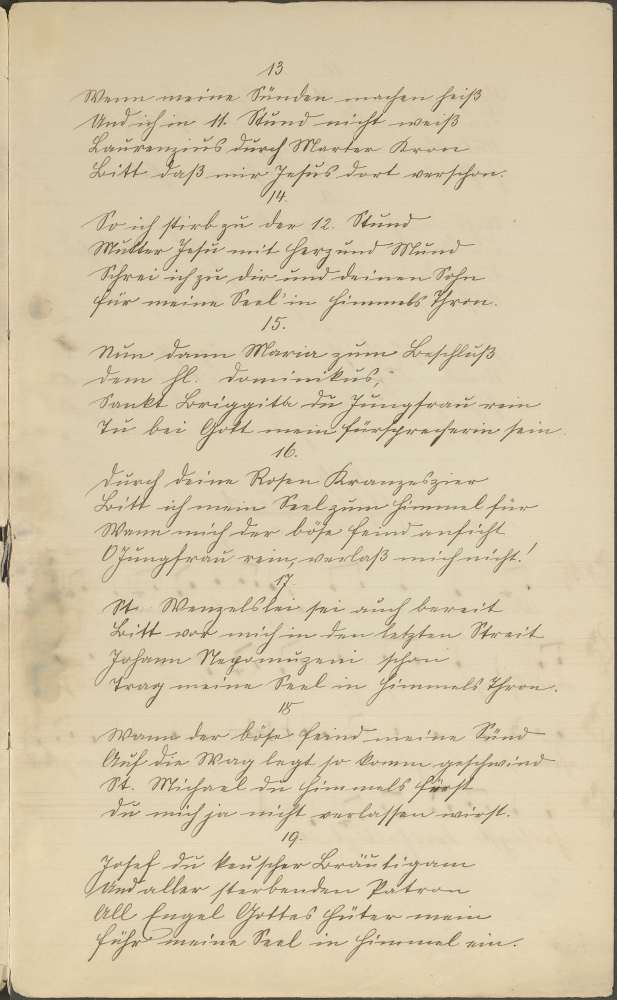 13
Wenn meine Sünden machen heiß
Und ich in 11. Stund nicht weiß
Laurenzius durch Marter Kron
Bitt daß mir Jesus dort verschon.
14.
So ich stirb zu der 12. Stund
Mutter Jesu mit Herz und Mund
Schrei ich zu dir und deinen Sohn
für meine Seel' in Himmels Thron.
15.
Nun dann Maria zum Beschluß
dem hl. Dominikus,
Sankt Briggita du Jungfrau rein
Tu bei Gott mein Fürsprecherin sein
16.
Durch deine Rosen Kranzeszier
Bitt ich mein Seel zum Himmel führ
Wann mich der böse Feind anficht
O Jungfrau rein, verlaß mich nicht!
17.
St. Wenzelslei sei auch bereit
Bitt vor mich in den letzten Streit
Johann Nepomuzeni schon
Trag meine Seel in Himmels Thron.
18
Wann der böse Feind meine Sünd
Auf die Wag legt so komm geschwind
St. Michael du Himmels Fürst
du mich ja nicht verlassen wirst.
19.
Josef du keuscher Bräutigam
Und aller sterbenden Patron
All Engel Gottes Hüter mein
führ meine Seel in Himmel ein.